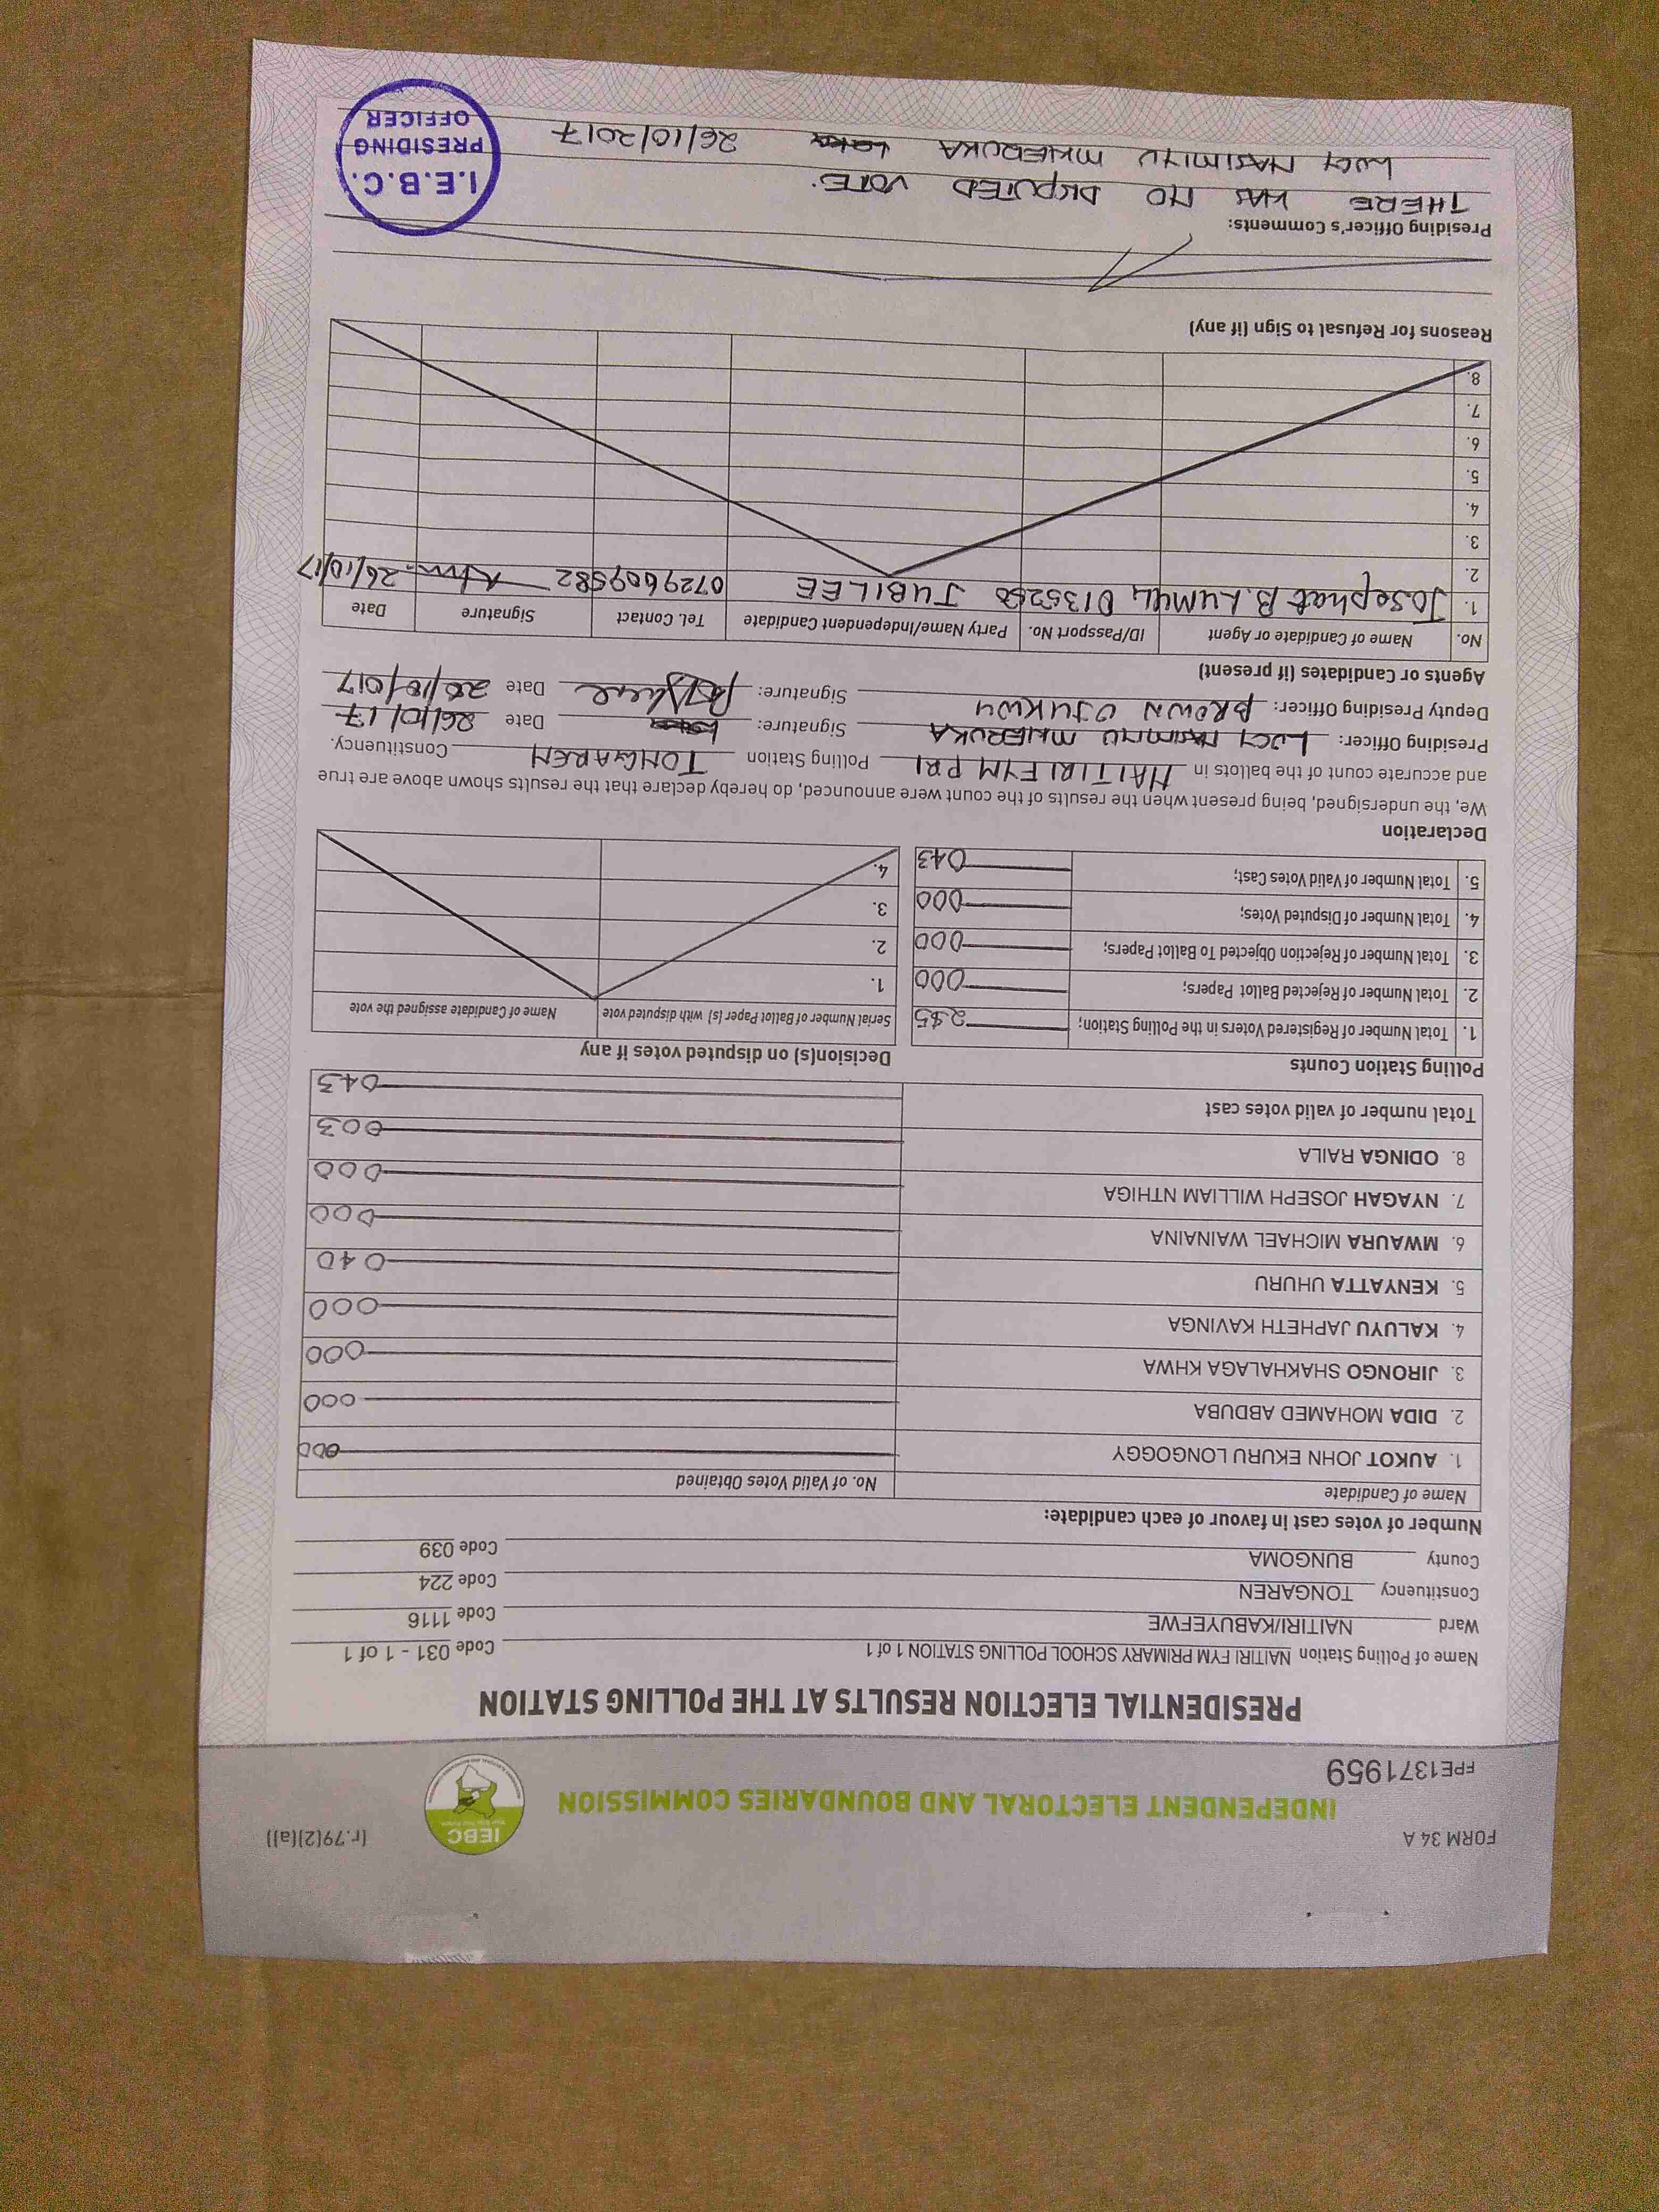 FORM 34 A
(r.79(2)(a))
IEBC
INDEPENDENT ELECTORAL AND BOUNDARIES COMMISSION
FPE1371959
PRESIDENTIAL ELECTION RESULTS AT THE POLLING STATION
Name of Polling Station NAITIRI FYM PRIMARY SCHOOL POLLING STATION 1 of 1 Code 031 - 1 of 1
Ward NAITIRI/KABUYEFWE Code 1116
Constituency TONGAREN Code 224
County BUNGOMA Code 039
Number of votes cast in favour of each candidate:
Name of Candidate No. of Valid Votes Obtained
1. AUKOT JOHN EKURU LONGOGGY 000
2. DIDA MOHAMED ABDUBA 000
3. JIRONGO SHAKHALAGA KHWA 000
4. KALUYU JAPHETH KAVINGA 000
5. KENYATTA UHURU 040
6. MWAURA MICHAEL WAINAINA 000
7. NYAGAH JOSEPH WILLIAM NTHIGA 000
8. ODINGA RAILA 003
Total number of valid votes cast 043
Polling Station Counts
1. Total Number of Registered Voters in the Polling Station;
2. Total Number of Rejected Ballot Papers; 000
3. Total Number of Rejection Objected To Ballot Papers; 000
4. Total Number of Disputed Votes; 000
5. Total Number of Valid Votes Cast; 043
Decision(s) on disputed votes if any
Serial Number of Ballot Paper (s) with disputed vote Name of Candidate assigned the vote
1.
2.
3.
4.
Declaration
We, the undersigned, being present when the results of the count were announced, do hereby declare that the results shown above are true
and accurate count of the ballots in NAITIRI FYM PRI Polling Station TONGAREN Constituency.
Presiding Officer: LUCY NASIMIYU Signature: Date 26/10/17
Deputy Presiding Officer: BROWN OJUKWU Signature: Date
Agents or Candidates (if present)
No. Name of Candidate or Agent ID/Passport No. Party Name/Independent Candidate Tel. Contact Signature Date
1. Josephat B. JUBILEE 0729609582 26/10/17
2.
3.
4.
5.
6.
7.
8.
Reasons for Refusal to Sign (if any)
Presiding Officer's Comments:
THERE WAS NO DISPUTED VOTE.
LUCY NASIMIYU 26/10/2017
I.E.B.C.
PRESIDING
OFFICER